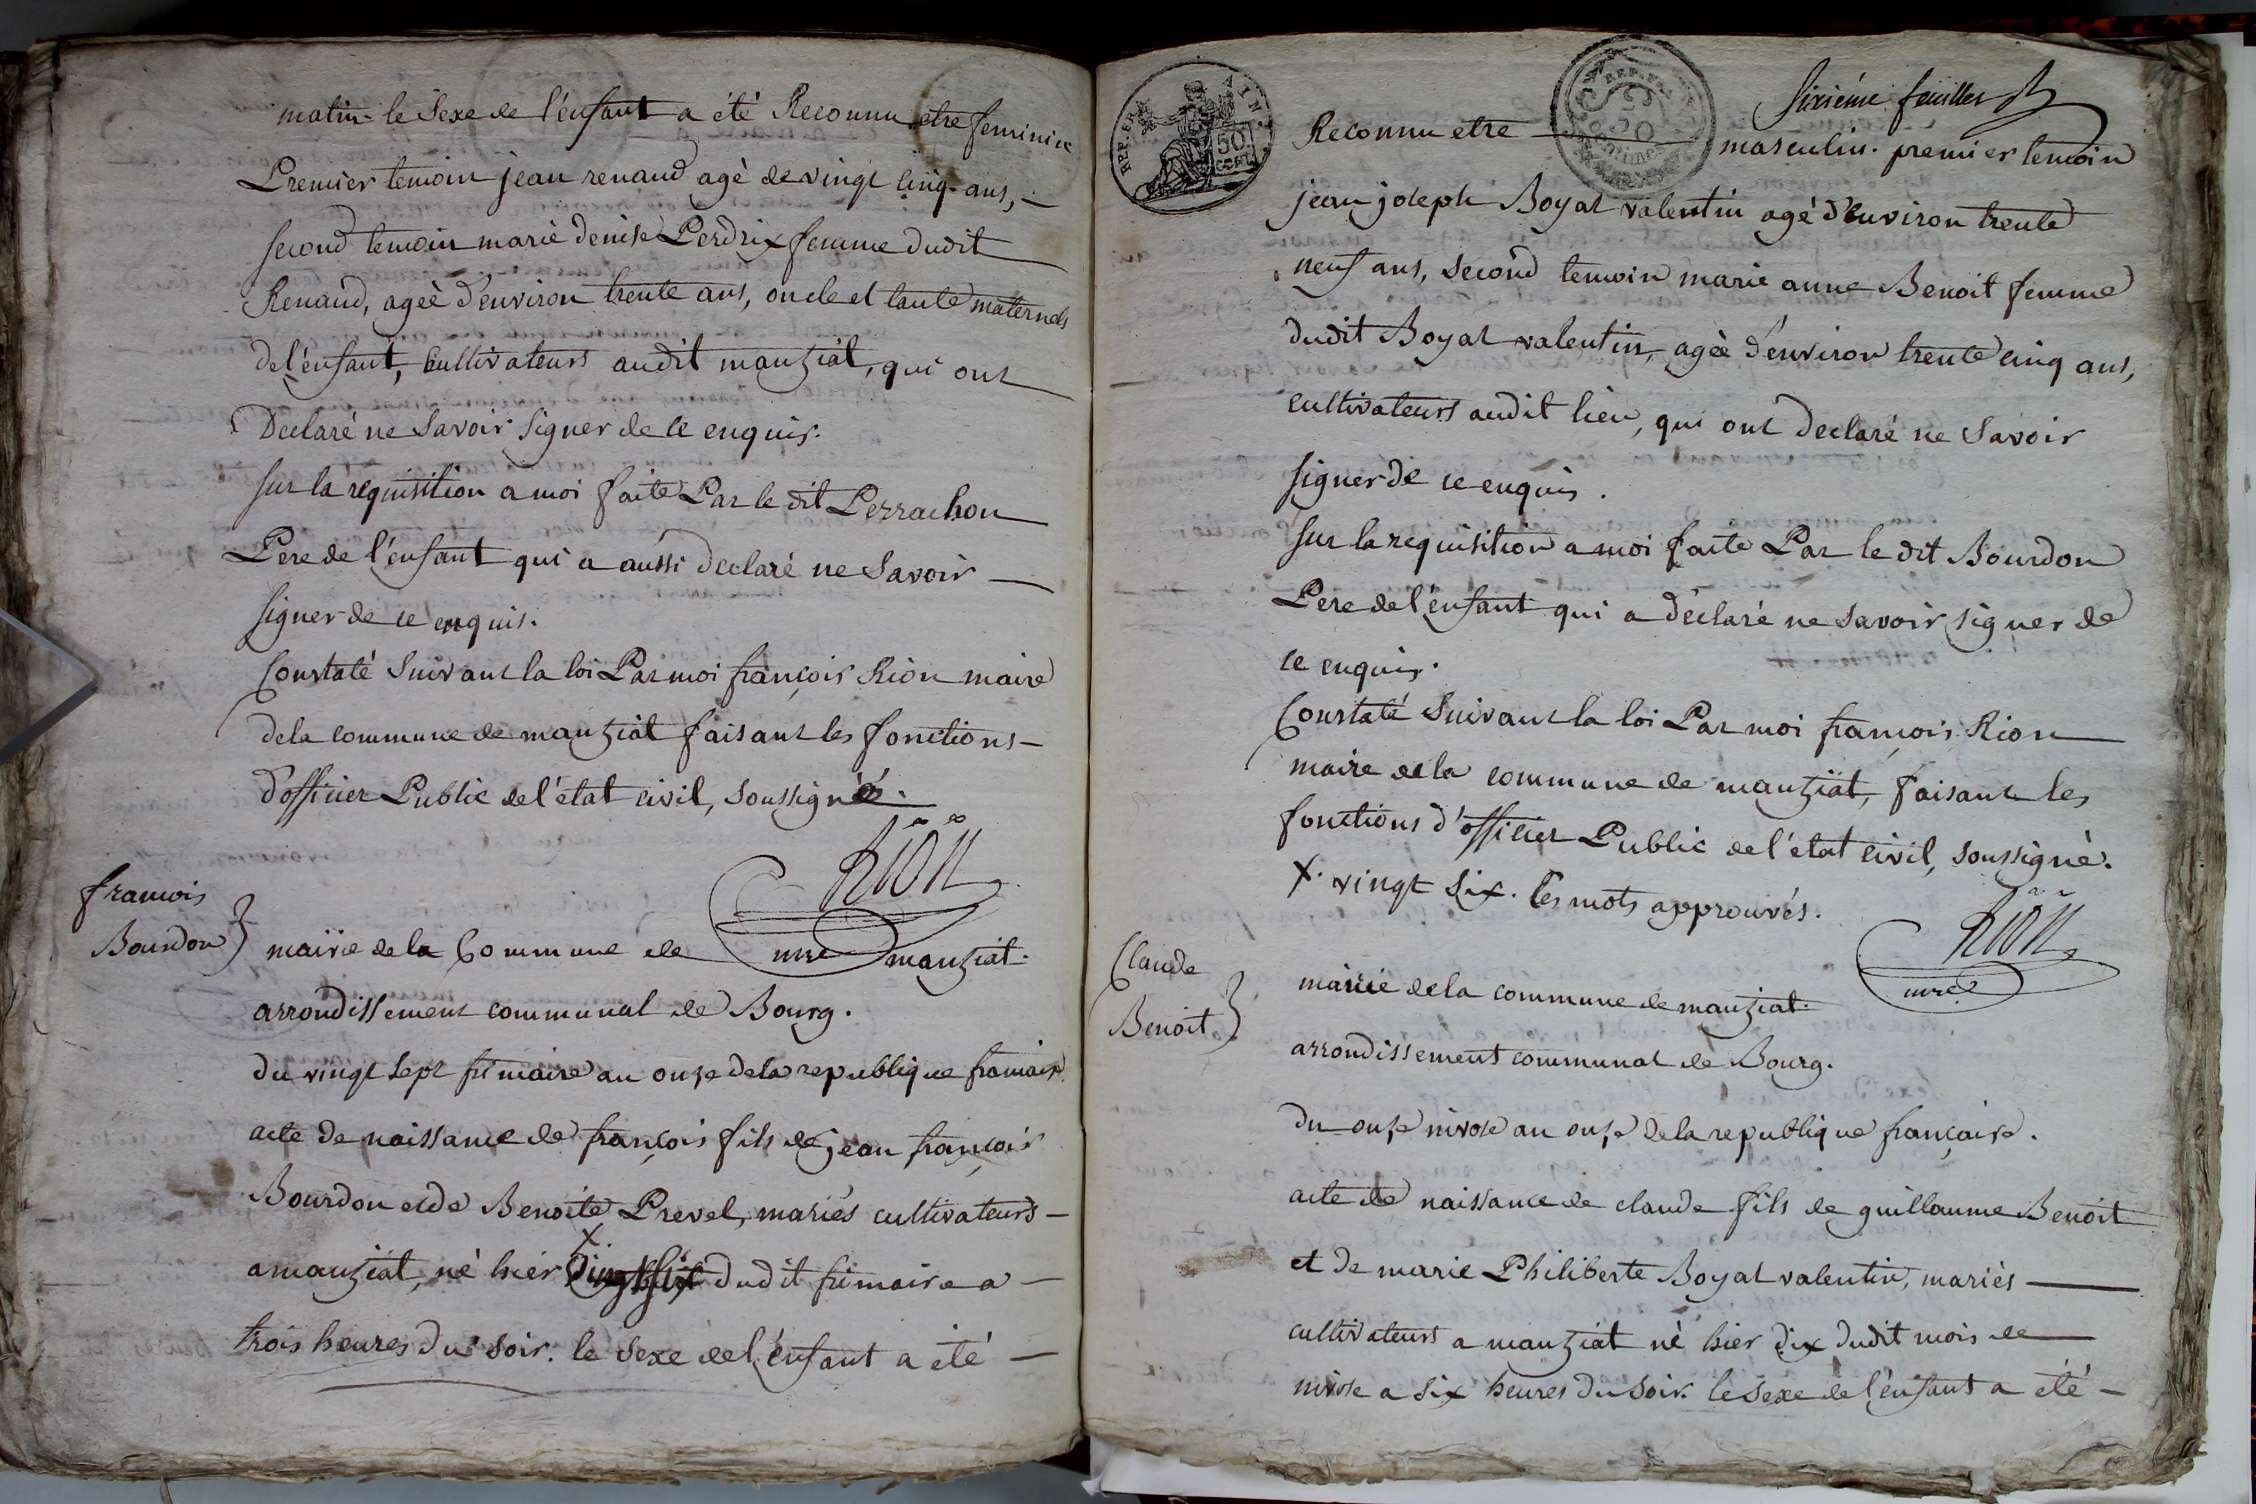 matin. le Sexe de l'enfant a été Reconnu etre feminin
Premier temoin jean renaud agè de vingt cinq ans,
second temoin marie denise Perdrix femme dudit
Renaud, ageè d'environ trente ans, oncle et tante maternels
de l'enfant, cultivateurs audit manziat, qui ont
Declaré ne Savoir signer de ce enquis.
sur la requisition a moi faite Par le dit Perrachon
Pere de l'enfant qui a aussi declaré ne Savoir
signer de ce enquis.
Constaté Suivant la loi Par moi françois Rion maire
dela commune de manziat faisant les fonctions
d'officier Public de l'état civil, soussigné.
Rion
mre
francois
Bourdon
mairie dela Commune de manziat.
arrondissement communal de Bourg.
du vingt sept frimaire an onze dela republique francaise
acte de naissance de françois fils de jean françois
Bourdon et de Benoite Prevel, mariés cultivateurs
a manziat, né hier X dudit frimaire a
trois heures du soir. le sexe de l'enfant a été
Sixiéme feuillet
REP. FRA
50
CENT
REP. FRA
50
Centimes
Reconnu etre masculin. premier temoin
jean joseph Boyat valentin agé d'environ trente
neuf ans, second temoin marie anne Benoit femme
dudit Boyat valentin, agèe d'environ trente cinq ans,
cultivateurs audit lieu, qui ont declaré ne Savoir
signer de ce enquis.
sur la requisition a moi faite Par le dit Bourdon
Pere de l'enfant qui a déclaré ne savoir signer de
ce enquis.
Constaté Suivant la loi Par moi françois Rion
maire dela commune de manziat, faisant les
fonctions d'officier Public de l'état civil, soussigné.
X. vingt six. les mots approuvés.
Rion
mre
Claude
Benoit
mairie dela commune de manziat.
arrondissement communal de Bourg.
du onze nivose an onze dela republique française.
acte de naissance de claude fils de guillaume Benoit
et de marie Philiberte Boyat valentin, mariés
cultivateurs a manziat né hier dix dudit mois de
nivose a six heures du soir. le sexe de l'enfant a été